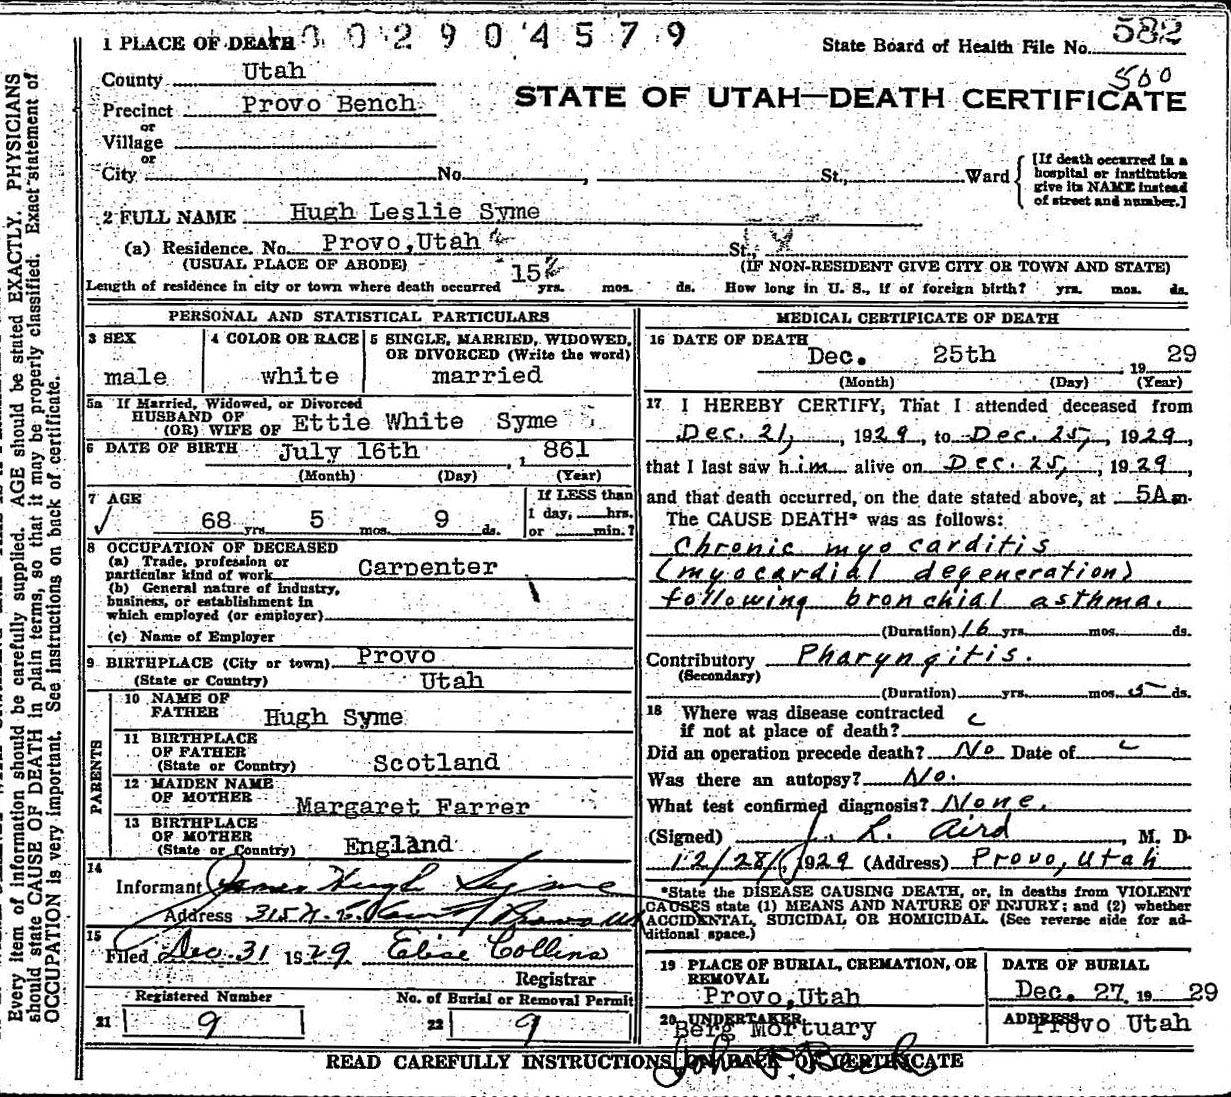 0 0 2 9 0 4 5 7 9
1 PLACE OF DEATH
State Board of Health File No. 582
County Utah
500
Precinct Provo Bench
STATE OF UTAH—DEATH CERTIFICATE
or
Village
or
City No. , St., Ward
[If death occurred in a
hospital or institution
give its NAME instead
of street and number.]
2 FULL NAME Hugh Leslie Syme
(a) Residence. No. Provo,Utah St.
(USUAL PLACE OF ABODE) (IF NON-RESIDENT GIVE CITY OR TOWN AND STATE)
Length of residence in city or town where death occurred 15 yrs. mos. ds. How long in U. S., if of foreign birth? yrs. mos. ds.
PERSONAL AND STATISTICAL PARTICULARS
3 SEX
male
4 COLOR OR RACE
white
5 SINGLE, MARRIED, WIDOWED,
OR DIVORCED (Write the word)
married
5a If Married, Widowed, or Divorced
HUSBAND OF
(OR) WIFE OF Ettie White Syme
6 DATE OF BIRTH July 16th , 1 861
(Month) (Day) (Year)
7 AGE
68 yrs. 5 mos. 9 ds.
If LESS than
1 day, hrs.
or min.?
8 OCCUPATION OF DECEASED
(a) Trade, profession or
particular kind of work Carpenter
(b) General nature of industry,
business, or establishment in
which employed (or employer)
(c) Name of Employer
9 BIRTHPLACE (City or town) Provo
(State or Country) Utah
PARENTS
10 NAME OF
FATHER Hugh Syme
11 BIRTHPLACE
OF FATHER
(State or Country) Scotland
12 MAIDEN NAME
OF MOTHER Margaret Farrer
13 BIRTHPLACE
OF MOTHER
(State or Country) England
14
Informant James Hugh Syme
Address 315
15
Filed Dec. 31 1929 Elise Collins
Registrar
Registered Number
21 9
No. of Burial or Removal Permit
22 9
MEDICAL CERTIFICATE OF DEATH
16 DATE OF DEATH
Dec. 25th 19 29
(Month) (Day) (Year)
17 I HEREBY CERTIFY, That I attended deceased from
Dec. 21, , 1929, to Dec. 25, , 1929,
that I last saw him alive on Dec. 25, , 1929,
and that death occurred, on the date stated above, at 5A m.
The CAUSE DEATH* was as follows:
Chronic myocarditis
(myocardial degeneration)
following bronchial asthma.
(Duration) 16 yrs. mos. ds.
Contributory Pharyngitis.
(Secondary)
(Duration) yrs. mos. 5 ds.
18 Where was disease contracted
if not at place of death?
Did an operation precede death? No Date of
Was there an autopsy? No.
What test confirmed diagnosis? None.
(Signed) J. R. Aird , M. D.
12/28/, 1929 (Address) Provo, Utah
*State the DISEASE CAUSING DEATH, or, in deaths from VIOLENT
CAUSES state (1) MEANS AND NATURE OF INJURY; and (2) whether
ACCIDENTAL, SUICIDAL OR HOMICIDAL. (See reverse side for ad-
ditional space.)
19 PLACE OF BURIAL, CREMATION, OR
REMOVAL
Provo,Utah
DATE OF BURIAL
Dec. 27, 19 29
20 UNDERTAKER
Berg Mortuary
ADDRESS
Provo Utah
READ CAREFULLY INSTRUCTIONS ON BACK OF CERTIFICATE
Every item of information should be carefully supplied. AGE should be stated EXACTLY. PHYSICIANS
should state CAUSE OF DEATH in plain terms, so that it may be properly classified. Exact statement of
OCCUPATION is very important. See instructions on back of certificate.